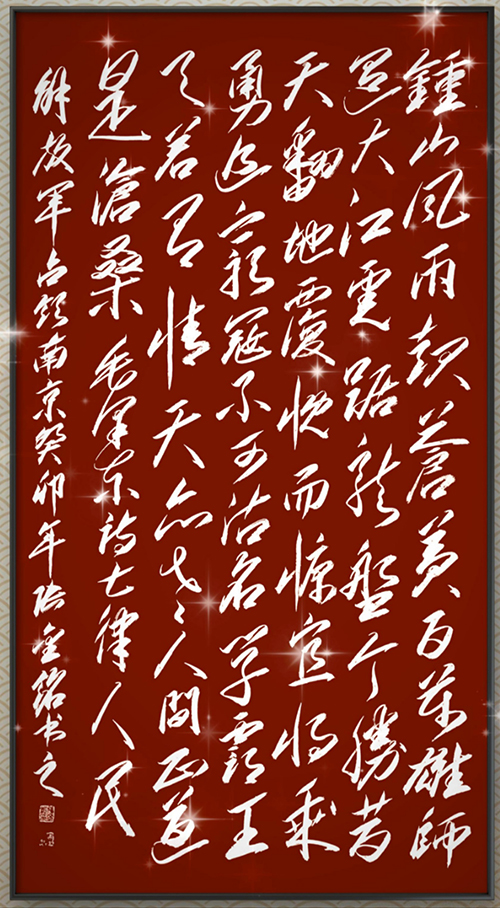 鍾山风雨起蒼黄百万雄師
過大江虎踞龍盤今勝昔
天翻地覆慨而慷宜将乘
勇追窮寇不可沽名学霸王
天若有情天亦老人間正道
是滄桑 毛澤东詩七律人民
解放军占领南京癸卯年 书之